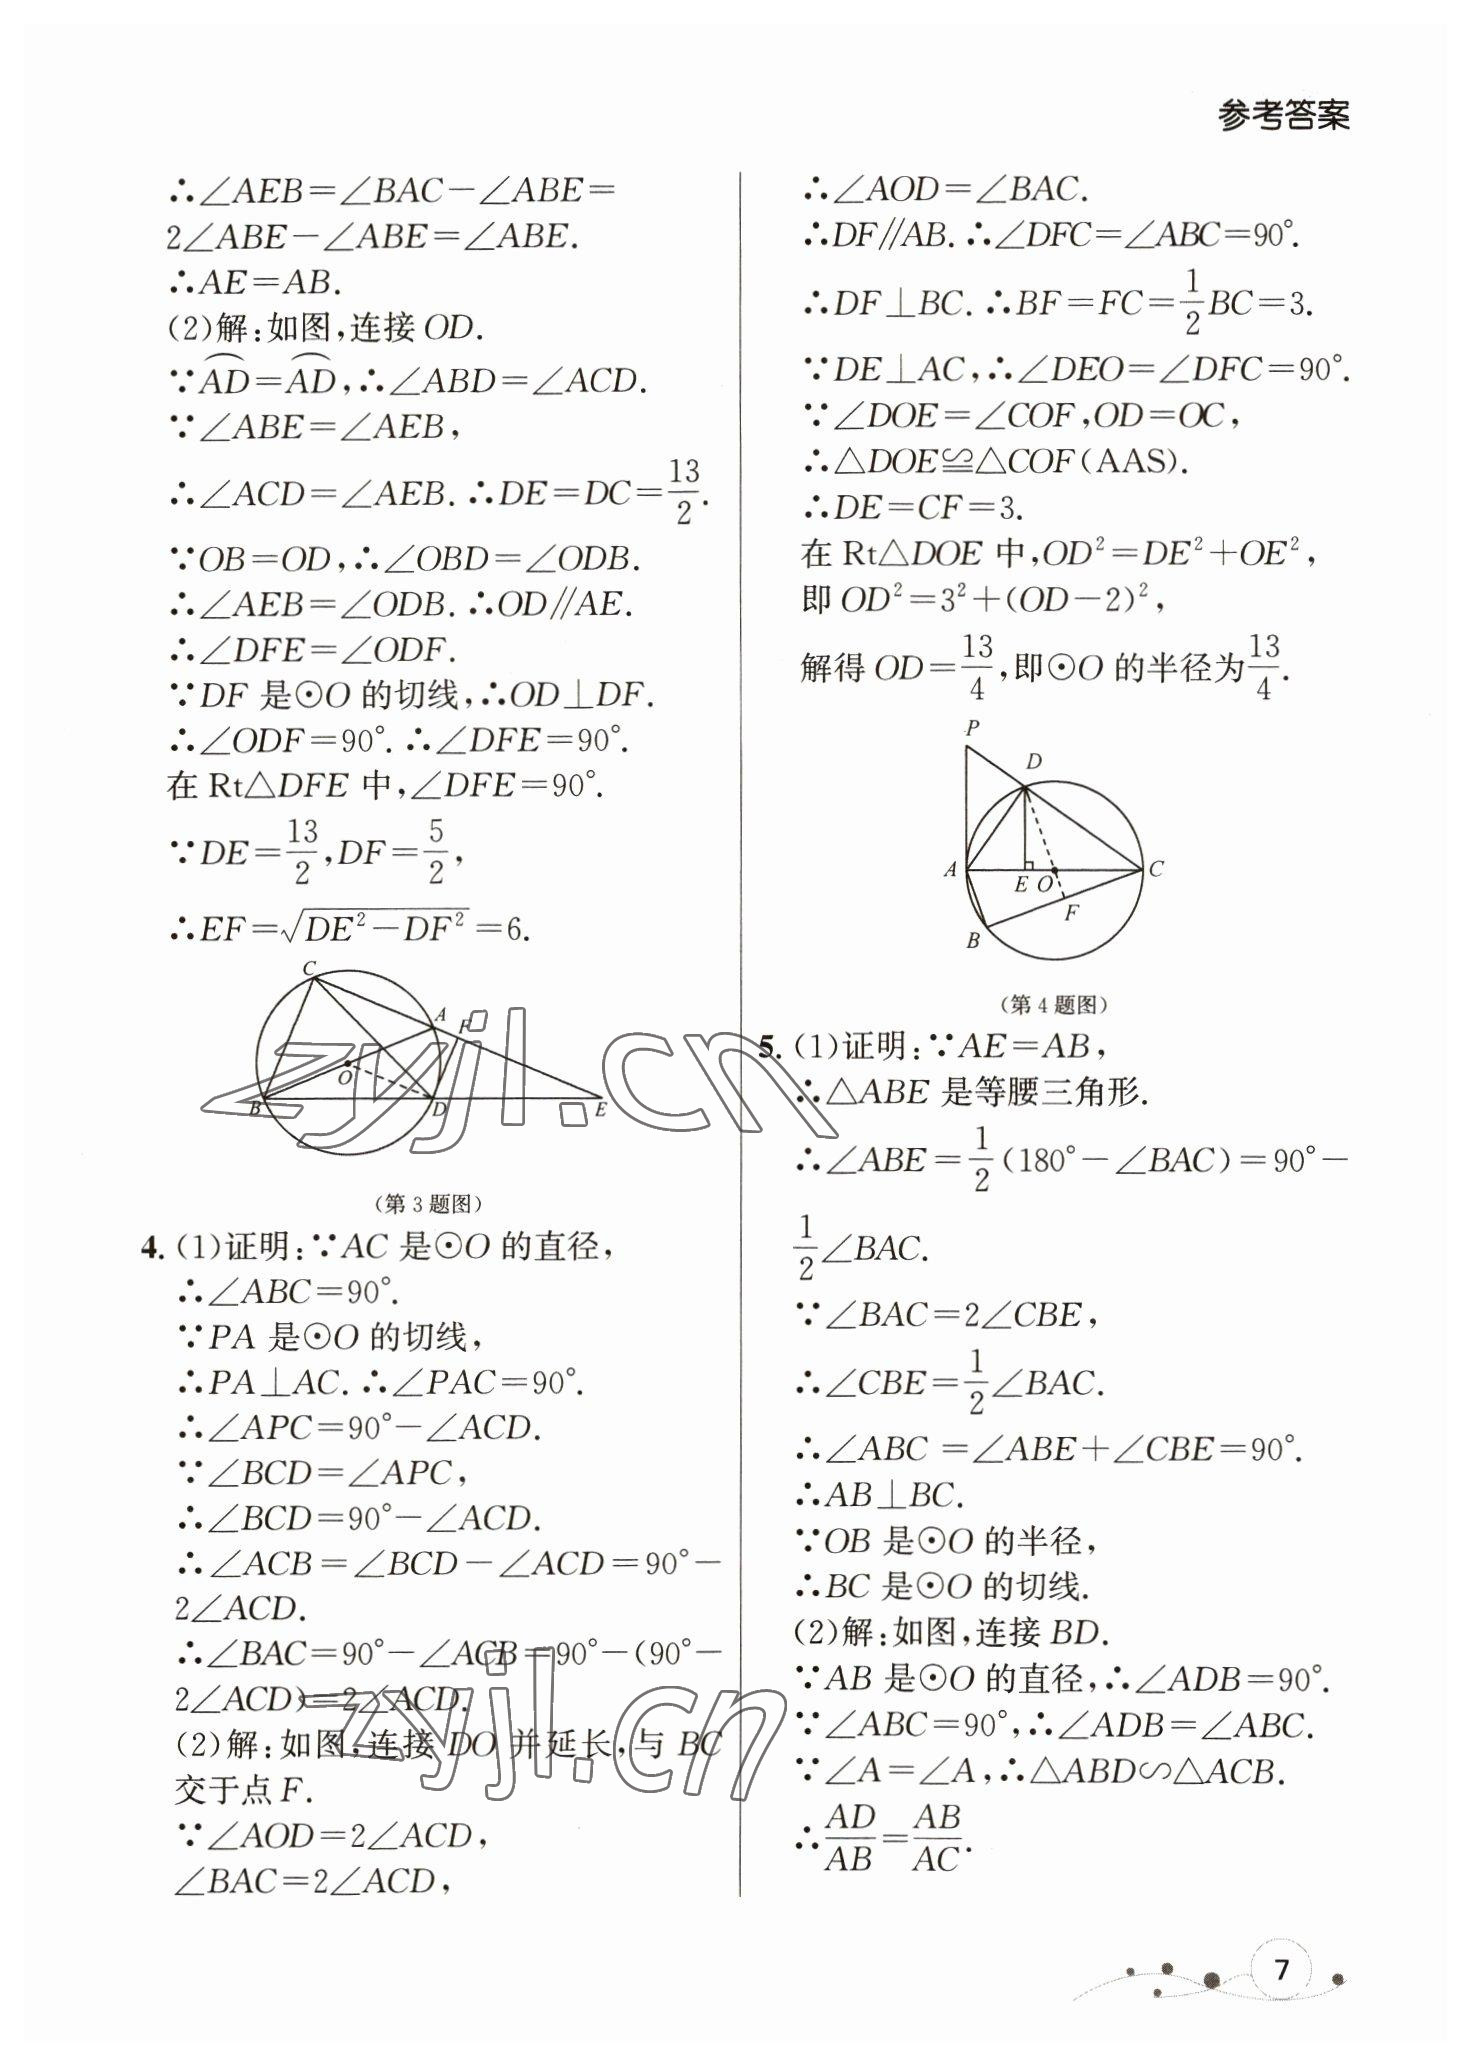 参考答案
∴∠AEB=∠BAC-∠ABE=
2∠ABE-∠ABE=∠ABE.
∴AE=AB.
(2)解:如图,连接 OD.
∵A͡D=A͡D,∴∠ABD=∠ACD.
∵∠ABE=∠AEB,
∴∠ACD=∠AEB. ∴DE=DC=13/2.
∵OB=OD,∴∠OBD=∠ODB.
∴∠AEB=∠ODB. ∴OD∥AE.
∴∠DFE=∠ODF.
∵DF 是⊙O 的切线,∴OD⊥DF.
∴∠ODF=90°. ∴∠DFE=90°.
在 Rt△DFE 中,∠DFE=90°.
∵DE=13/2,DF=5/2,
∴EF=√(DE²-DF²)=6.
C
A
F
O
B
D
E
(第 3 题图)
4. (1)证明:∵AC 是⊙O 的直径,
∴∠ABC=90°.
∵PA 是⊙O 的切线,
∴PA⊥AC. ∴∠PAC=90°.
∴∠APC=90°-∠ACD.
∵∠BCD=∠APC,
∴∠BCD=90°-∠ACD.
∴∠ACB=∠BCD-∠ACD=90°-
2∠ACD.
∴∠BAC=90°-∠ACB=90°-(90°-
2∠ACD)=2∠ACD.
(2)解:如图,连接 DO 并延长,与 BC
交于点 F.
∵∠AOD=2∠ACD,
∠BAC=2∠ACD,
∴∠AOD=∠BAC.
∴DF∥AB. ∴∠DFC=∠ABC=90°.
∴DF⊥BC. ∴BF=FC=1/2BC=3.
∵DE⊥AC,∴∠DEO=∠DFC=90°.
∵∠DOE=∠COF,OD=OC,
∴△DOE≌△COF(AAS).
∴DE=CF=3.
在 Rt△DOE 中,OD²=DE²+OE²,
即 OD²=3²+(OD-2)²,
解得 OD=13/4,即⊙O 的半径为13/4.
P
D
A
E
O
C
F
B
(第 4 题图)
5. (1)证明:∵AE=AB,
∴△ABE 是等腰三角形.
∴∠ABE=1/2(180°-∠BAC)=90°-
1/2∠BAC.
∵∠BAC=2∠CBE,
∴∠CBE=1/2∠BAC.
∴∠ABC=∠ABE+∠CBE=90°.
∴AB⊥BC.
∵OB 是⊙O 的半径,
∴BC 是⊙O 的切线.
(2)解:如图,连接 BD.
∵AB 是⊙O 的直径,∴∠ADB=90°.
∵∠ABC=90°,∴∠ADB=∠ABC.
∵∠A=∠A,∴△ABD∽△ACB.
∴AD/AB=AB/AC.
7
zyjl.cn
zyjl.cn